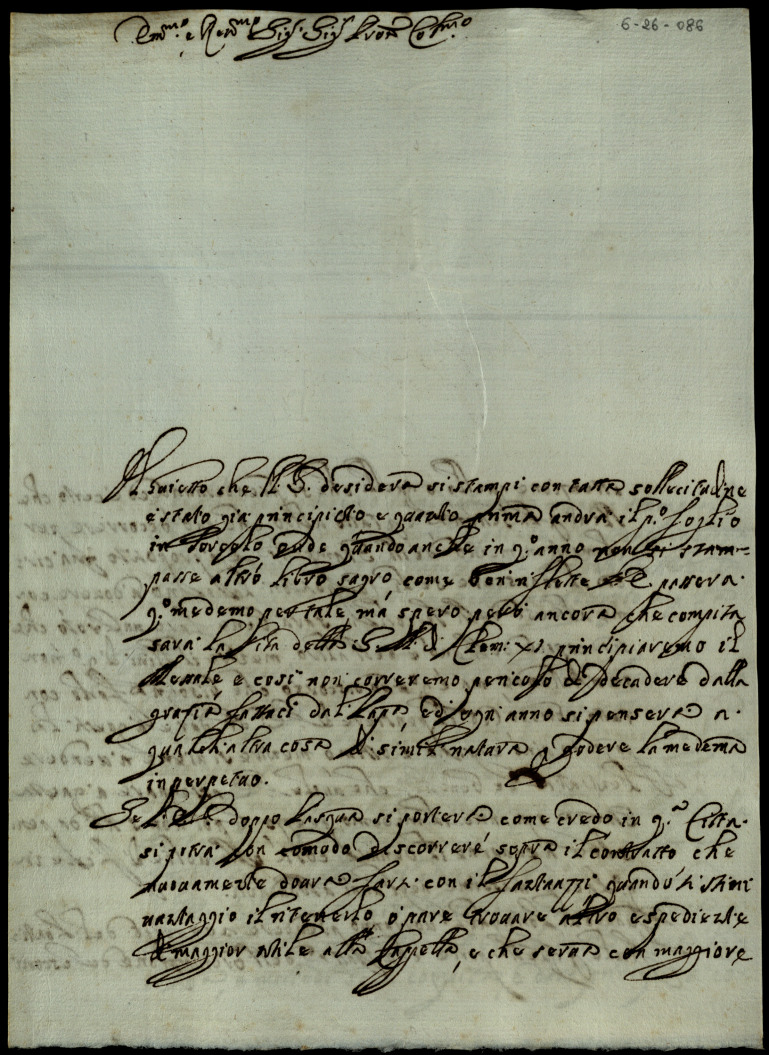 6-26-086
Em.mo e Rev.mo Sig.r Sig.r Pron Col.mo
che V. S. desidera si stampi con tutta sollecitudine
è stato già principiato e quanto prima andrà il p.o foglio
in Torcolo onde quando anche in q.o anno non si stam=
passe altro libro sagro come ben riflette passerà
q.o medemo per tale, má spero però ancora che compita
sarà la Vita della S. M. di Clem: XI principiaremo il
e così non correremo pericolo di decadere dalla
grazia fattaci dal Papa, ed ogni anno si penserà a
qualch'altra cosa di simil natura p godere la medema
in perpetuo.
Se V. S. doppo Pasqua si porterà come credo in q.ta Città
si potrà con comodo discorrere sopra il contratto che
nuovamente dovrà farsi con il quando si stimi
vantaggio il ritenerlo ò pure trovare altro espediente
di maggior utile alla Cappella, e che serva con maggiore